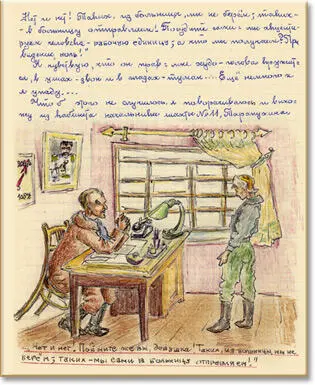 Нет и нет! Таких, из больницы, мы не берём; таких-
- в больницу отправляем! Посудите сами: мы
человека - рабочую единицу; а кто мы получаем? Ин-
ноль!
Я чувствую, что он прав: мне худо - голова кружит-
ся, в ушах - звон и в глазах - туман... Ещё немного и
я упаду...
Чтоб этого не случилось, я поворачиваюсь и выхо-
жу из кабинета начальника шахты № 11,
„Нет и нет! Поймите же вы, девушка! Таких, из больницы, мы не
берём; таких - мы сами в больницу отправляем!"